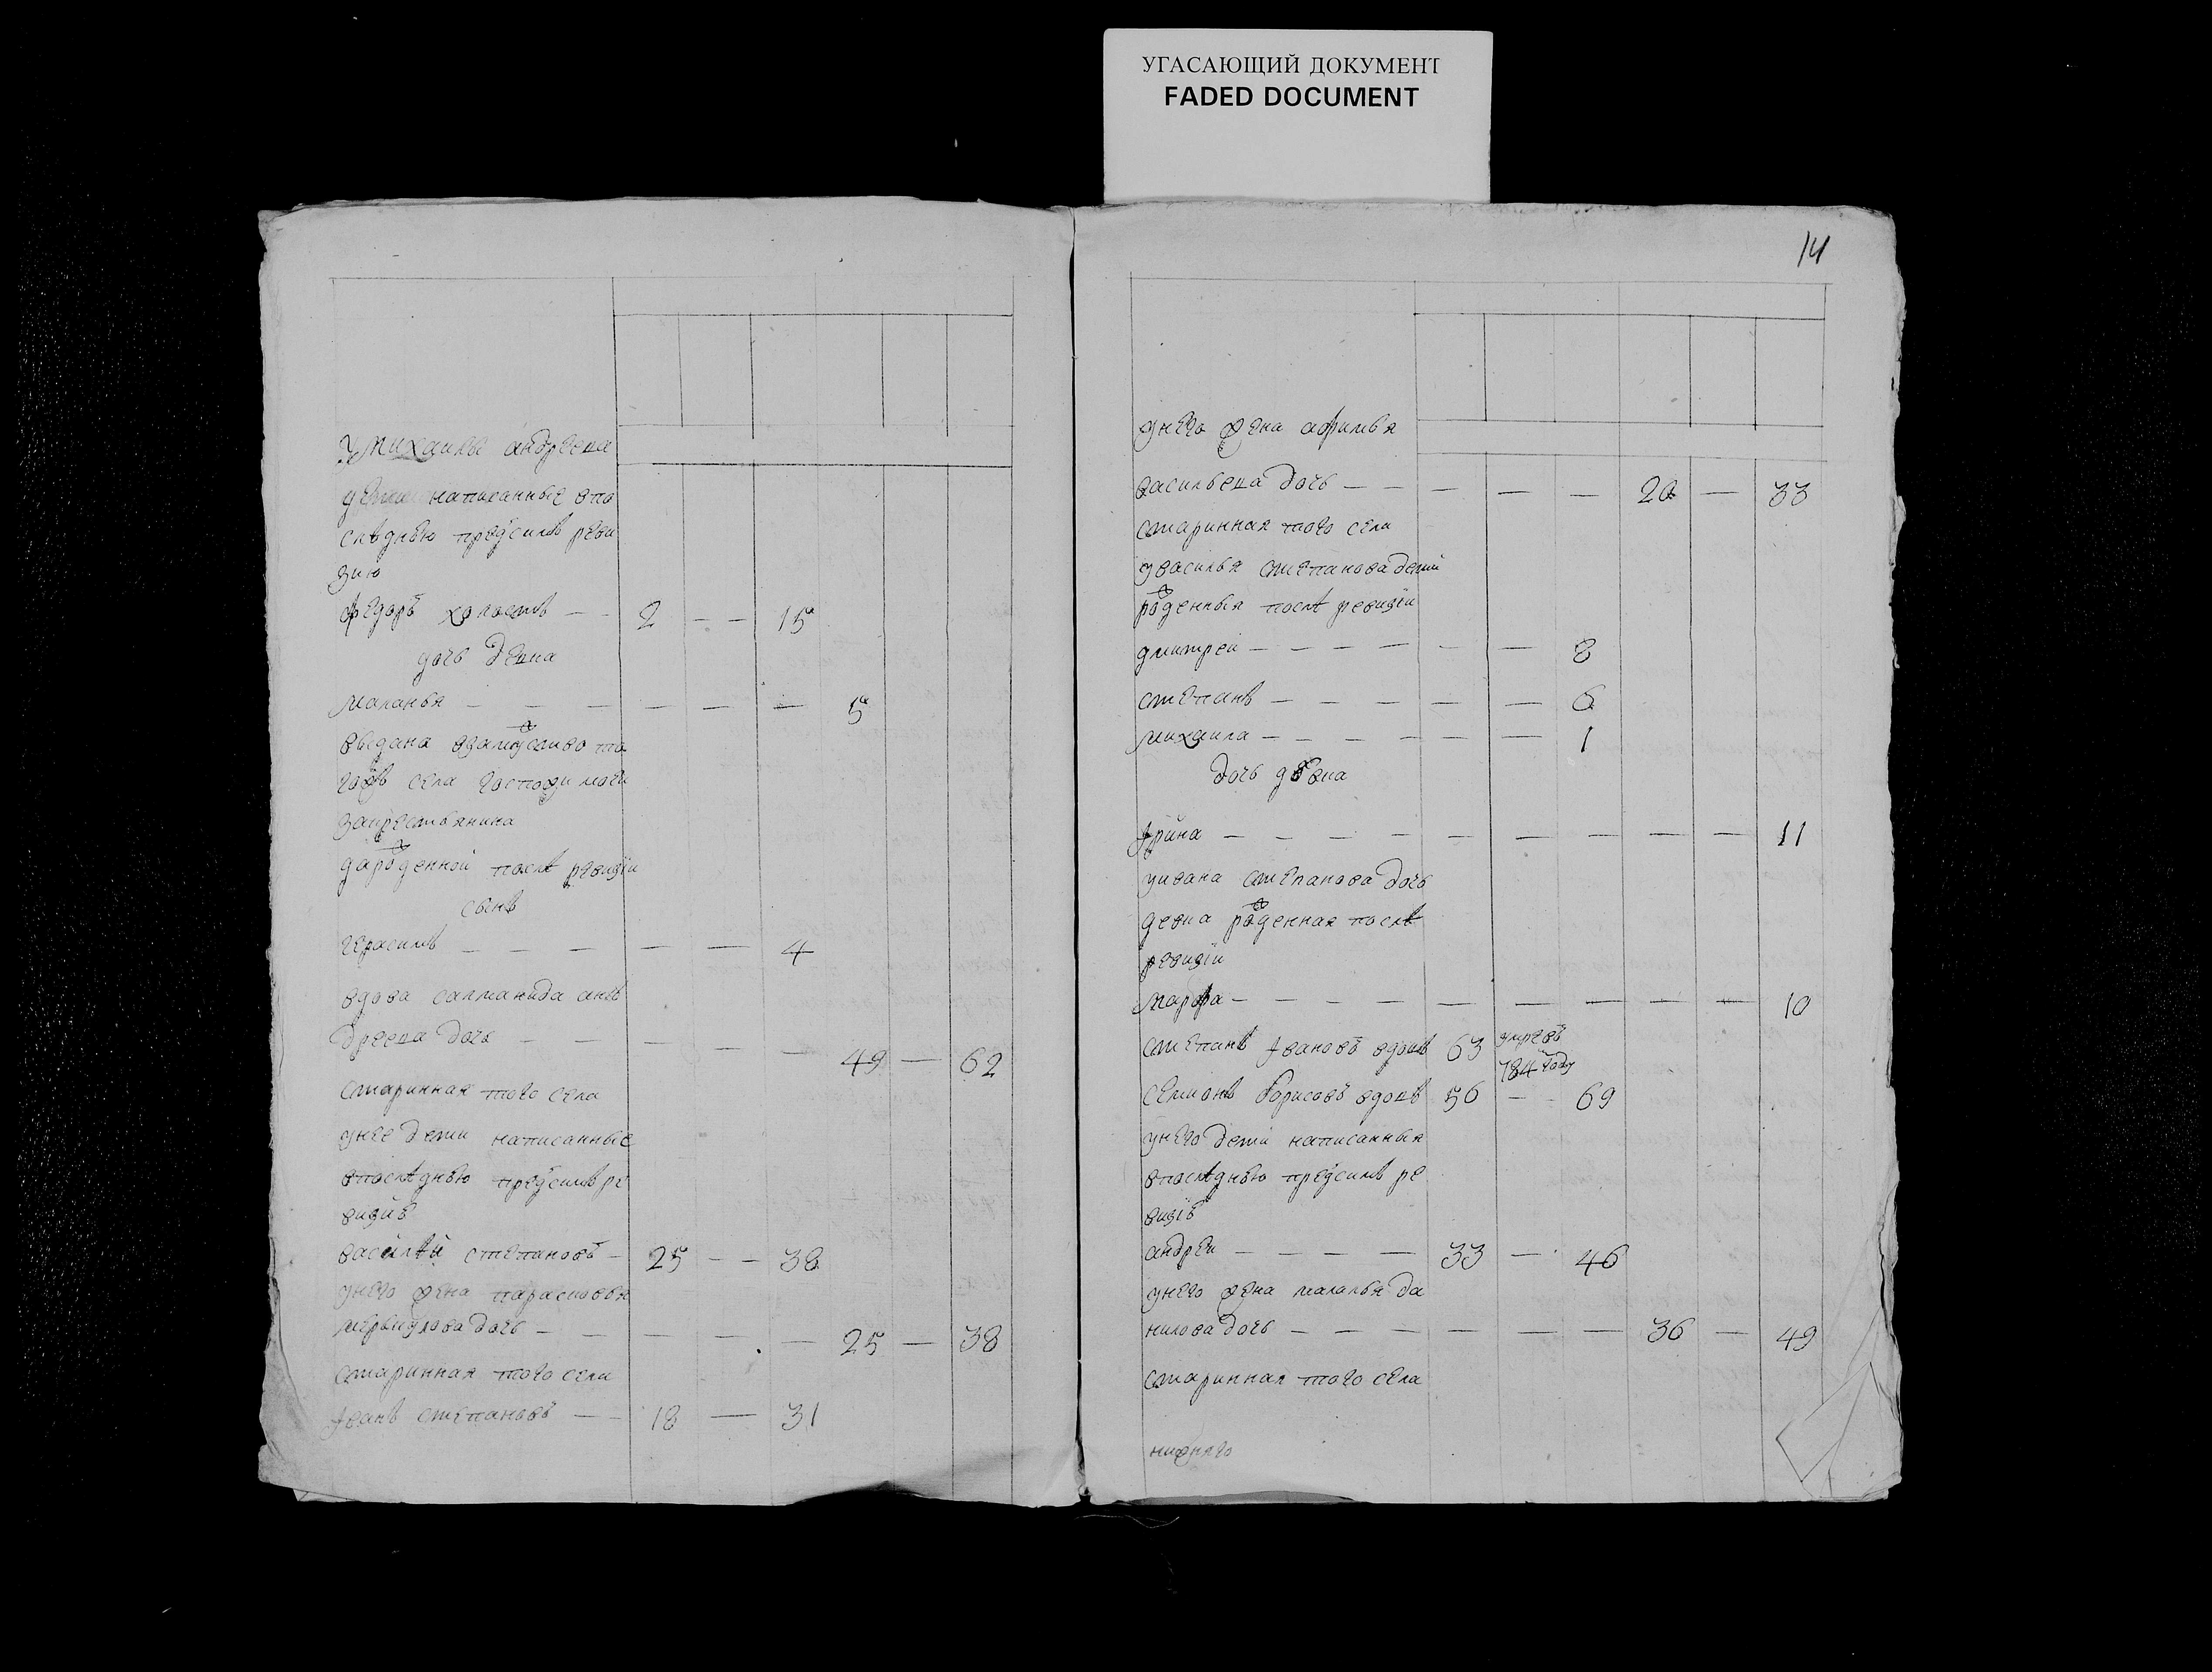 УГАСАЮЩИЙ ДОКУМЕНТ
FADED DOCUMENT
14
умихаилы андреева
дети написанные впо
слѣднюю предсимъ реви
зию
федоръ холостъ — — 2 — — 15
дочь девка
маланья — — — — — — 5
выдана взамужство то
гожъ села госпожи
закрестьянина
дароженной послѣ ревизiи
сынъ
герасимъ — — — — — 4
вдова салманида анъ
дреева дочь — — — — — 49 — 62
старинная того села
унее дети написанные
впослѣднюю предсимъ ре
визию
василѣй степановъ — 25 — — 38
унего жена парасковья
дочь — — — — — 25 — 38
старинная того села
Iванъ степановъ — — 18 — 31
унего жена афимья
васильева дочь — — — — — 20 — 33
старинная того села
увасилья степанова дети
рожденныя послѣ ревизiи
дмитреи — — — — — — 8
степанъ — — — — — — 6
михаила — — — — — — 1
дочь девка
Iрина — — — — — — — — — 11
уивана степанова дочь
девка рожденная послѣ
ревизiи
марфа — — — — — — — — — 10
степанъ Iвановъ вдовъ 63 умре въ
784 году
семионъ борисовъ вдовъ 56 — — 69
унего дети написанныя
впослѣднюю предсимъ ре
визiю
андреи — — — — 33 — 46
унего жена маланья да
нилова дочь — — — — — — 36 — 49
старинная того села